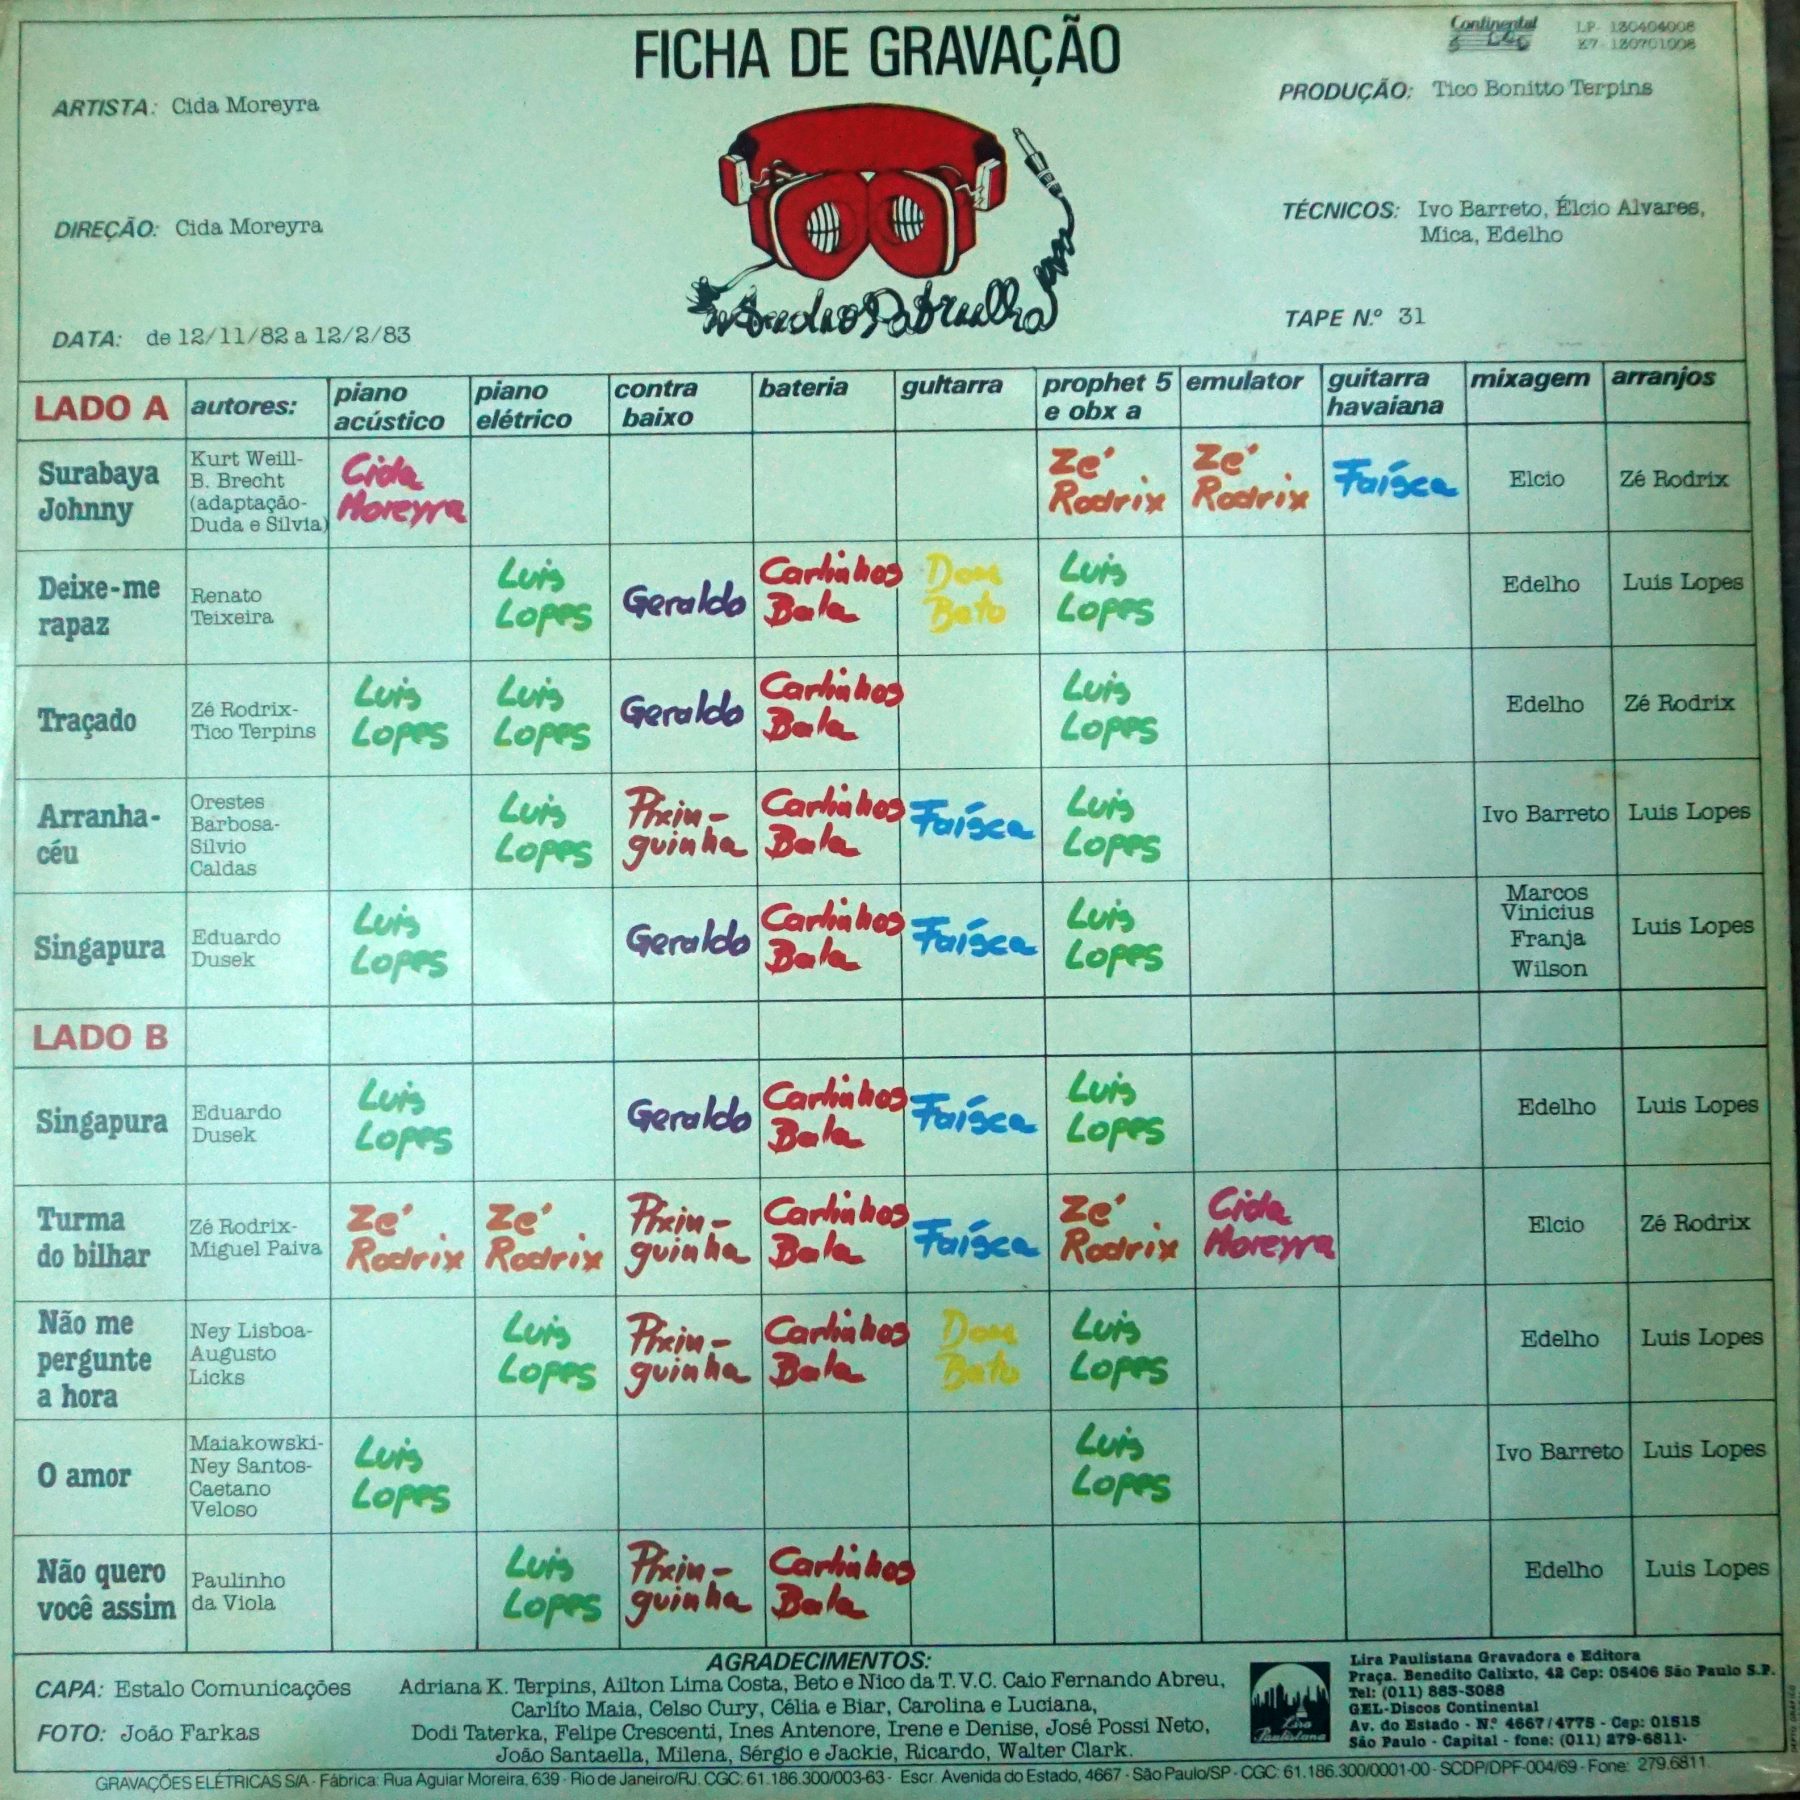 FICHA DE GRAVAÇÃO
Continental
LP- 130404008
K7- 130701008
ARTISTA: Cida Moreyra
PRODUÇÃO: Tico Bonitto Terpins
DIREÇÃO: Cida Moreyra
TÉCNICOS: Ivo Barreto, Élcio Alvares,
Mica, Edelho
DATA: de 12/11/82 a 12/2/83
TAPE N.º 31
LADO A
autores:
piano
acústico
piano
elétrico
contra
baixo
bateria
guitarra
prophet 5
e obx a
emulator
guitarra
havaiana
mixagem
arranjos
Surabaya
Johnny
Kurt Weill-
B. Brecht
(adaptação-
Duda e Silvia)
Cida
Moreyra
Zé
Rodrix
Zé
Rodrix
Faísca
Elcio
Zé Rodrix
Deixe-me
rapaz
Renato
Teixeira
Luis
Lopes
Geraldo
Carlinhos
Bala
Dom
Beto
Luis
Lopes
Edelho
Luis Lopes
Traçado
Zé Rodrix-
Tico Terpins
Luis
Lopes
Luis
Lopes
Geraldo
Carlinhos
Bala
Luis
Lopes
Edelho
Zé Rodrix
Arranha-
céu
Orestes
Barbosa-
Silvio
Caldas
Luis
Lopes
Pixin-
guinha
Carlinhos
Bala
Faísca
Luis
Lopes
Ivo Barreto
Luis Lopes
Singapura
Eduardo
Dusek
Luis
Lopes
Geraldo
Carlinhos
Bala
Faísca
Luis
Lopes
Marcos
Vinicius
Franja
Wilson
Luis Lopes
LADO B
Singapura
Eduardo
Dusek
Luis
Lopes
Geraldo
Carlinhos
Bala
Faísca
Luis
Lopes
Edelho
Luis Lopes
Turma
do bilhar
Zé Rodrix-
Miguel Paiva
Zé
Rodrix
Zé
Rodrix
Pixin-
guinha
Carlinhos
Bala
Faísca
Zé
Rodrix
Cida
Moreyra
Elcio
Zé Rodrix
Não me
pergunte
a hora
Ney Lisboa-
Augusto
Licks
Luis
Lopes
Pixin-
guinha
Carlinhos
Bala
Dom
Beto
Luis
Lopes
Edelho
Luis Lopes
O amor
Maiakowski-
Ney Santos-
Caetano
Veloso
Luis
Lopes
Luis
Lopes
Ivo Barreto
Luis Lopes
Não quero
você assim
Paulinho
da Viola
Luis
Lopes
Pixin-
guinha
Carlinhos
Bala
Edelho
Luis Lopes
CAPA: Estalo Comunicações
FOTO: João Farkas
AGRADECIMENTOS:
Adriana K. Terpins, Ailton Lima Costa, Beto e Nico da T.V.C. Caio Fernando Abreu,
Carlito Maia, Celso Cury, Célia e Biar, Carolina e Luciana,
Dodi Taterka, Felipe Crescenti, Ines Antenore, Irene e Denise, José Possi Neto,
João Santaella, Milena, Sérgio e Jackie, Ricardo, Walter Clark.
Lira
Paulistana
Lira Paulistana Gravadora e Editora
Praça. Benedito Calixto, 42 Cep: 05406 São Paulo S.P.
Tel: (011) 883-3088
GEL-Discos Continental
Av. do Estado - N.º 4667/4775 - Cep: 01515
São Paulo - Capital - fone: (011) 279-6811-
GRAVAÇÕES ELÉTRICAS S/A - Fábrica: Rua Aguiar Moreira, 639 - Rio de Janeiro/RJ. CGC: 61.186.300/003-63 - Escr. Avenida do Estado, 4667 - São Paulo/SP - CGC: 61.186.300/0001-00 - SCDP/DPF-004/69 - Fone: 279.6811.